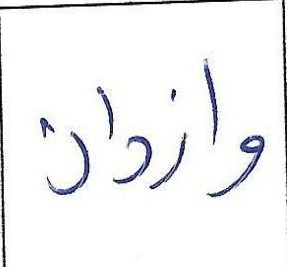 وازدان